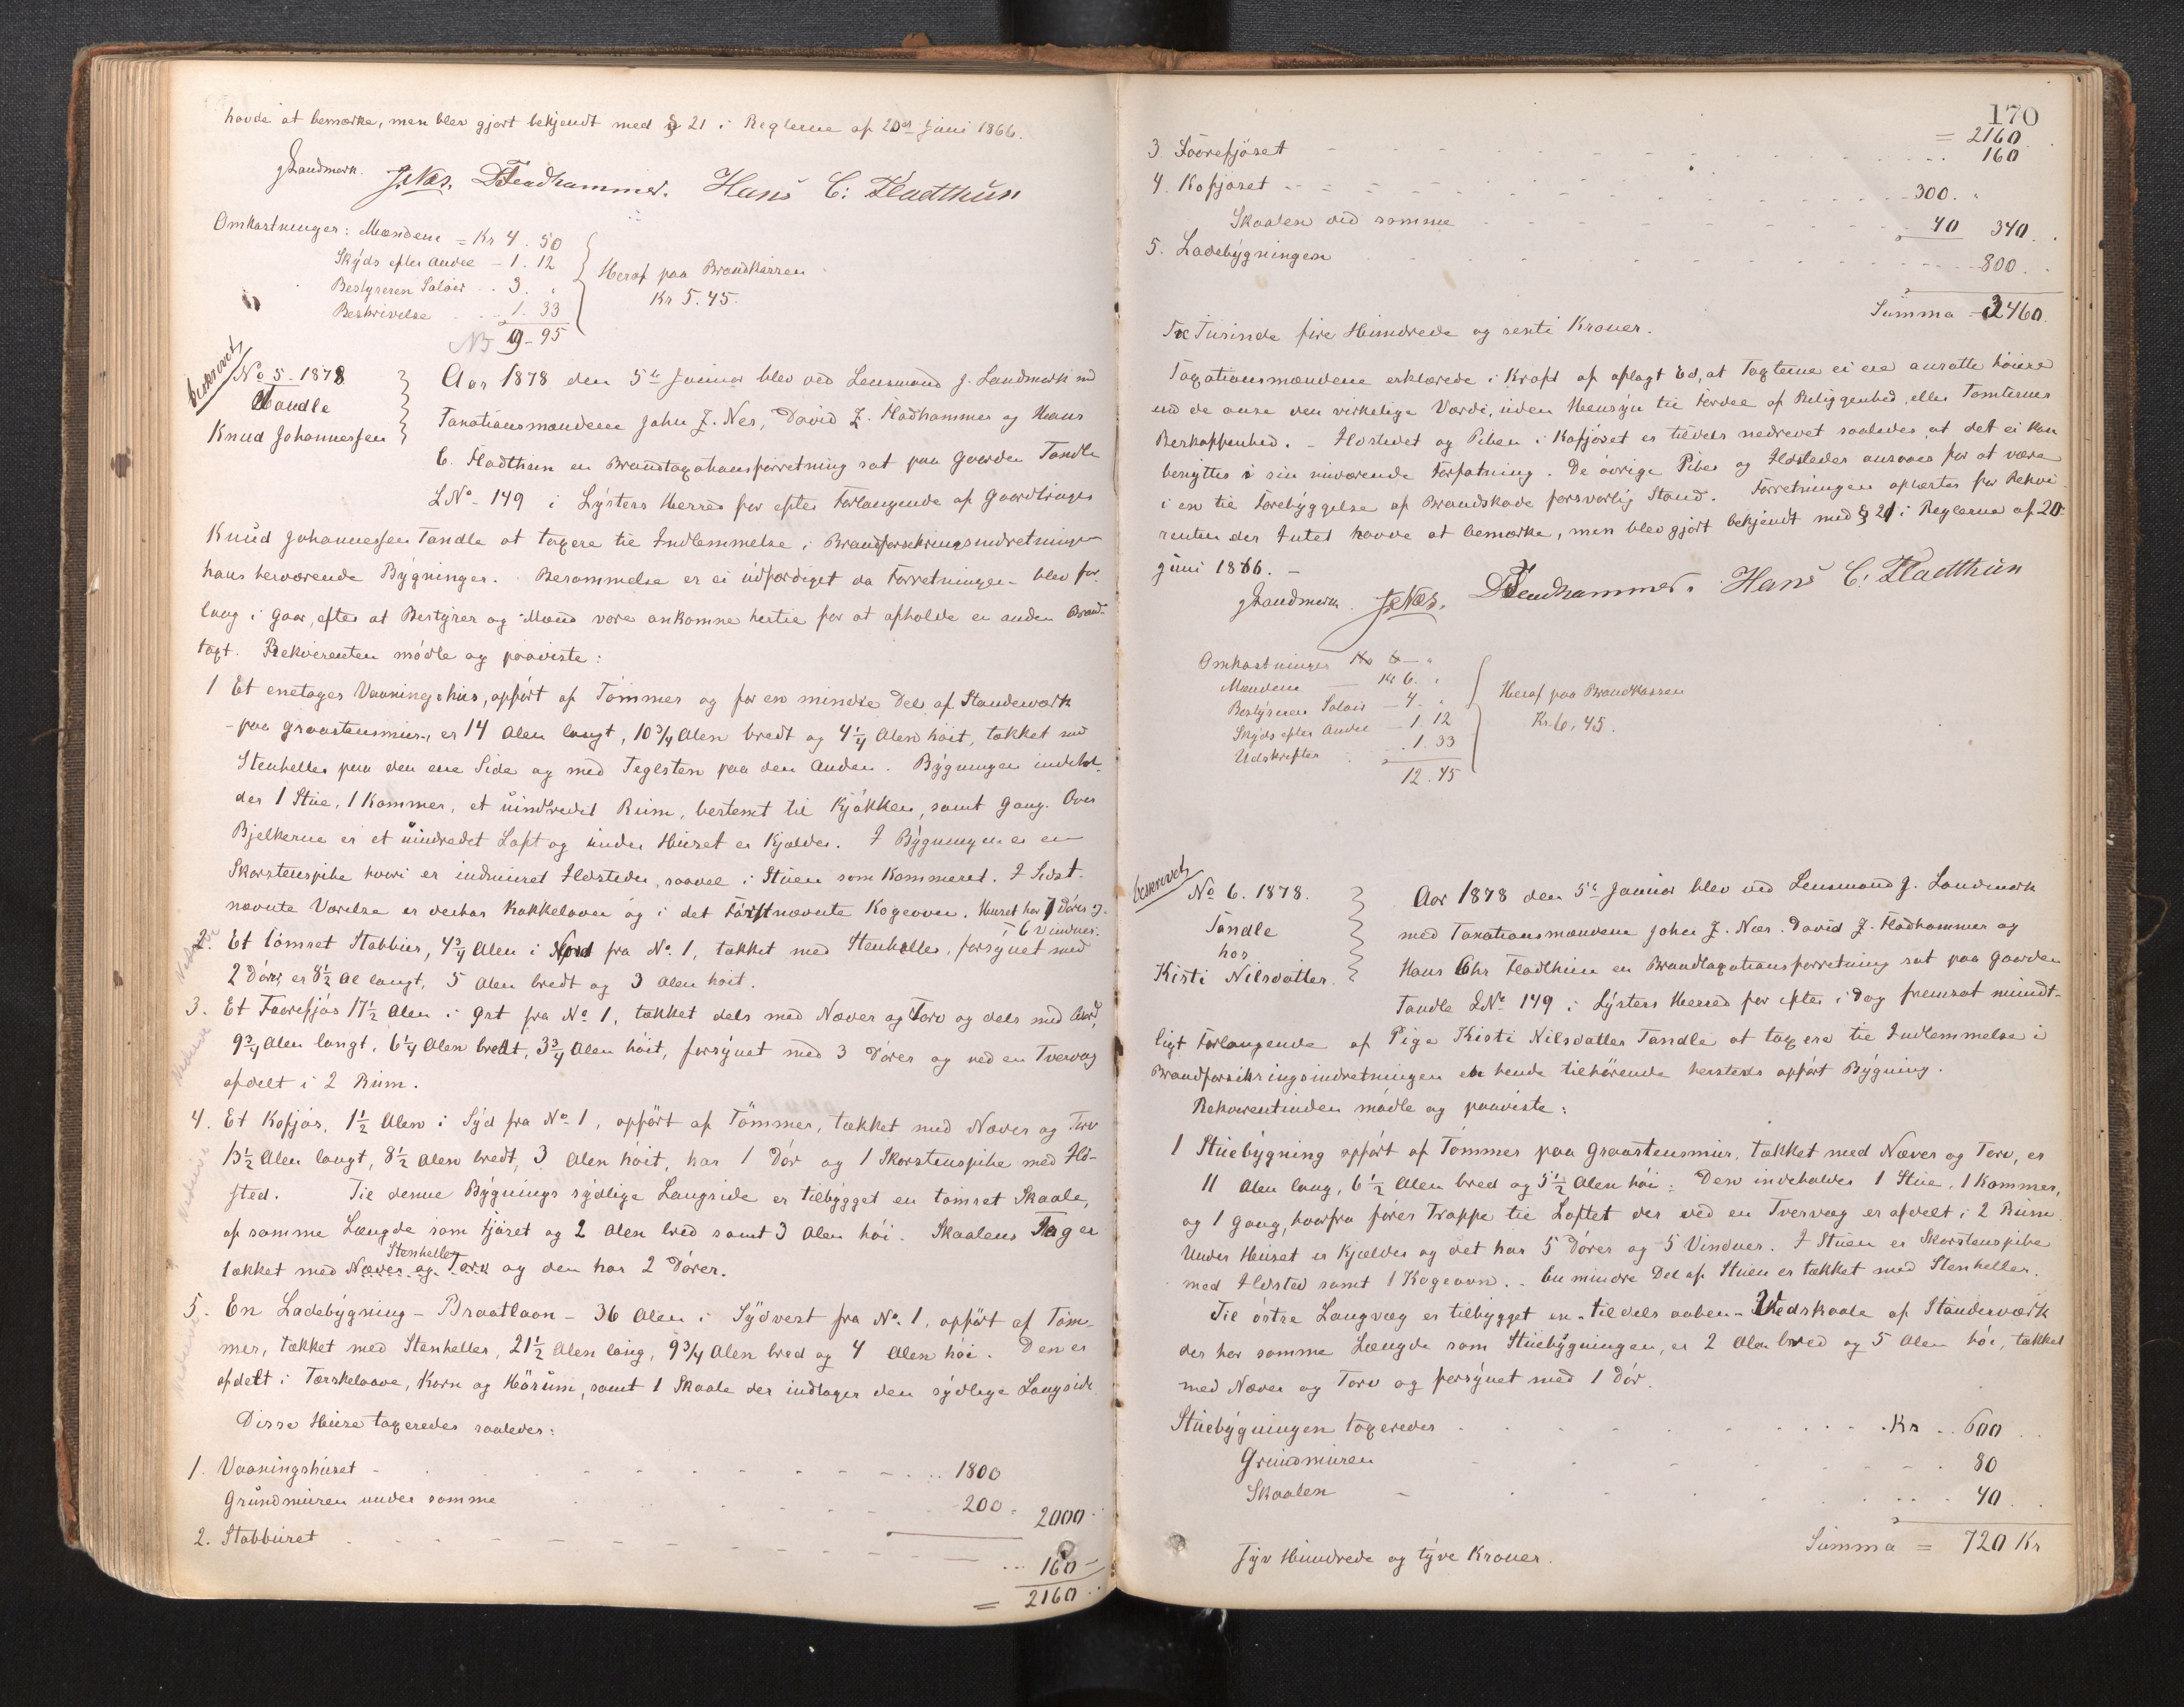 havde at bemærke, men blev gjort bekjendt med § 21 i Reglerne af 20de Juni 1866.
J Landmark. J. Nes. D Fladhammer. Hans C: Fladthun
Omkostninger: Mændene = Kr 4. 50
Skyds efter Andre - 1. 12
Bestyreren Salair .. 3. "
Beskrivelse .. - 1. 33
NB 9 - 95
Heraf paa Brandkassen
Kr 5.45.
beskrevet
No 5 - 1878
Tandle
Knud Johannessen
Aar 1878 den 5te Januar blev ved Lensmand J. Landmark med
Taxationsmændene John J. Nes, David J. Fladhammer og Hans
C. Fladthun en Brandtaxationsforretning sat paa Gaarden Tandle
L No - 149 i Lysters Herred for efter Forlangende af Gaardbruger
Knud Johannessen Tandle at taxere til Indlemmelse i Brandforsikringsindretningen
hans herværende Bygninger. Berammelse er ei udfærdiget da Forretningen blev for-
langt i Gaar, efter at Bestyrer og Mænd vare ankomne hertil for at afholde en anden Brand-
taxt. Rekvirenten mødte og paaviste:
1 Et enetages Vaaningshus, opført af Tømmer og for en mindre Del af Standerværk
- paa Graastensmur, er 14 Alen langt, 10 3/4 Alen bredt og 4 1/4 Alen høit, tækket med
Stenheller paa den ene Side og med Teglsten paa den Anden. Bygningen indehol-
der 1 Stue, 1 Kammer, et uindredet Rum, bestemt til Kjøkken, samt Gang. Over
Bjelkerne er et uindredet Loft og under Huset er Kjælder. I Bygningen er en
Skorstenspibe hvori er indmuret Ildsteder, saavel i Stuen som Kammeret. I Sidst-
nævnte Værelse er derhos Kakkelovn og i det Førstnævnte Kogeovn. Huset har 7 Dører og
6 Vinduer.
2. Et tømret Stabbur, 4 3/4 Alen i Nord fra No. 1, tækket med Stenheller, forsynet med
2 Dører, er 8 1/2 Al langt, 5 Alen bredt og 3 Alen høit.
3. Et Faarefjøs 17 1/2 Alen i Øst fra No 1, tækket dels med Næver og Torv og dels med Bord,
9 3/4 Alen langt, 6 1/4 Alen bredt, 3 3/4 Alen høit, forsynet med 3 Dører og ved en Tvervæg
afdelt i 2 Rum.
4. Et Kofjøs, 1 1/2 Alen i Syd fra No 1, opført af Tømmer, tækket med Næver og Torv
13 1/2 Alen langt, 8 1/2 Alen bredt, 3 Alen høit, har 1 Dør og 1 Skorstenspibe med Ild-
sted. Til denne Bygnings sydlige Langside er tilbygget en tømret Skaale,
af samme Længde som Fjøset og 2 Alen bred samt 3 Alen høi. Skaalens Tag er
Stenheller
tækket med Næver og Torv og den har 2 Dører.
5. En Ladebygning - Braatlaen - 36 Alen i Sydvest fra No. 1, opført af Tøm-
mer, tækket med Stenheller, 21 1/2 Alen lang, 9 3/4 Alen bred og 4 Alen høi. Den er
afdelt i Tærskelaave, Korn og Hørum, samt 1 Skaale der indtager den sydlige Langside.
Disse Huse taxeredes saaledes:
1. Vaaningshuset - 1800
Grundmuren under samme 200 . 2000
2. Stabburet 160
= 2160
170
= 2160
3 Faarefjøset 160
4. Kofjøset 300. "
Skaalen ved samme 40 340
5. Ladebygningen 800.
Summa - 3460.
Tre Tusinde fire Hundrede og sexti Kroner.
Taxationsmændene erklærede i Kraft af aflagt Ed, at Taxterne ei ere ansatte høiere
end de anse den virkelige Værdi, uden Hensyn til Fordel af Beliggenhed, eller Tomternes
Beskaffenhed. - Ildstedet og Piben i Kofjøset er tildels nedrevet saaledes at det ei kan
benyttes i sin nuværende Forfatning. De øvrige Piber og Ildsteder ansaaes for at være
i en til Forebyggelse af Brandskade forsvarlig Stand. Forretningen oplæstes for Rekvi-
renten der Intet havde at bemærke, men blev gjort bekjendt med § 21 i Reglerne af 20:
Juni 1866. -
J Landmark. J. Nes. D Fladhammer. Hans C: Fladthun
Omkostninger Kr 6 - "
Mændene Kr 6. "
Bestyreren Salair - 4. "
Skyds efter Andre - 1. 12
Udskrifter . 1. 33
12. 45
Heraf paa Brandkassen
Kr. 6,45.
beskrevet
No 6. 1878.
Tandle
hos
Kisti Nilsdatter.
Aar 1878 den 5te Januar blev ved Lensmand J. Landmark
med Taxationsmændene John J. Nes. David J. Fladhammer og
Hans Chr Fladthun en Brandtaxationsforretning sat paa Gaarden
Tandle L No 149 i Lysters Herred for efter i Dag fremsat mundt-
ligt Forlangende af Pige Kisti Nilsdatter Tandle at taxere til Indlemmelse i
Brandforsikringsindretningen en hende tilhørende hersteds opført Bygning.
Rekvirentinden mødte og paaviste:
1 Stuebygning opført af Tømmer paa Graastensmur, tækket med Næver og Torv, er
11 Alen lang, 6 1/2 Alen bred og 5 1/2 Alen høi: Den indeholder 1 Stue, 1 Kammer,
og 1 Gang, hvorfra fører Trappe til Loftet der ved en Tvervæg er afdelt i 2 Rum.
Under Huset er Kjælder og det har 5 Dører og 5 Vinduer. I Stuen er Skorstenspibe
med Ildsted samt 1 Kogeovn. - En mindre Del af Stuen er tækket med Stenheller.
Til østre Langvæg er tilbygget en - tildels aaben - Vedskaale af Standerværk
der har samme Længde som Stuebygningen, er 2 Alen bred og 5 Alen høi, tækket
med Næver og Torv og forsynet med 1 Dør.
Stuebygningen taxeredes Kr .. 600
Grundmuren 80
Skaalen 40
Summa = 720 Kr
Syv Hundrede og tyve Kroner.